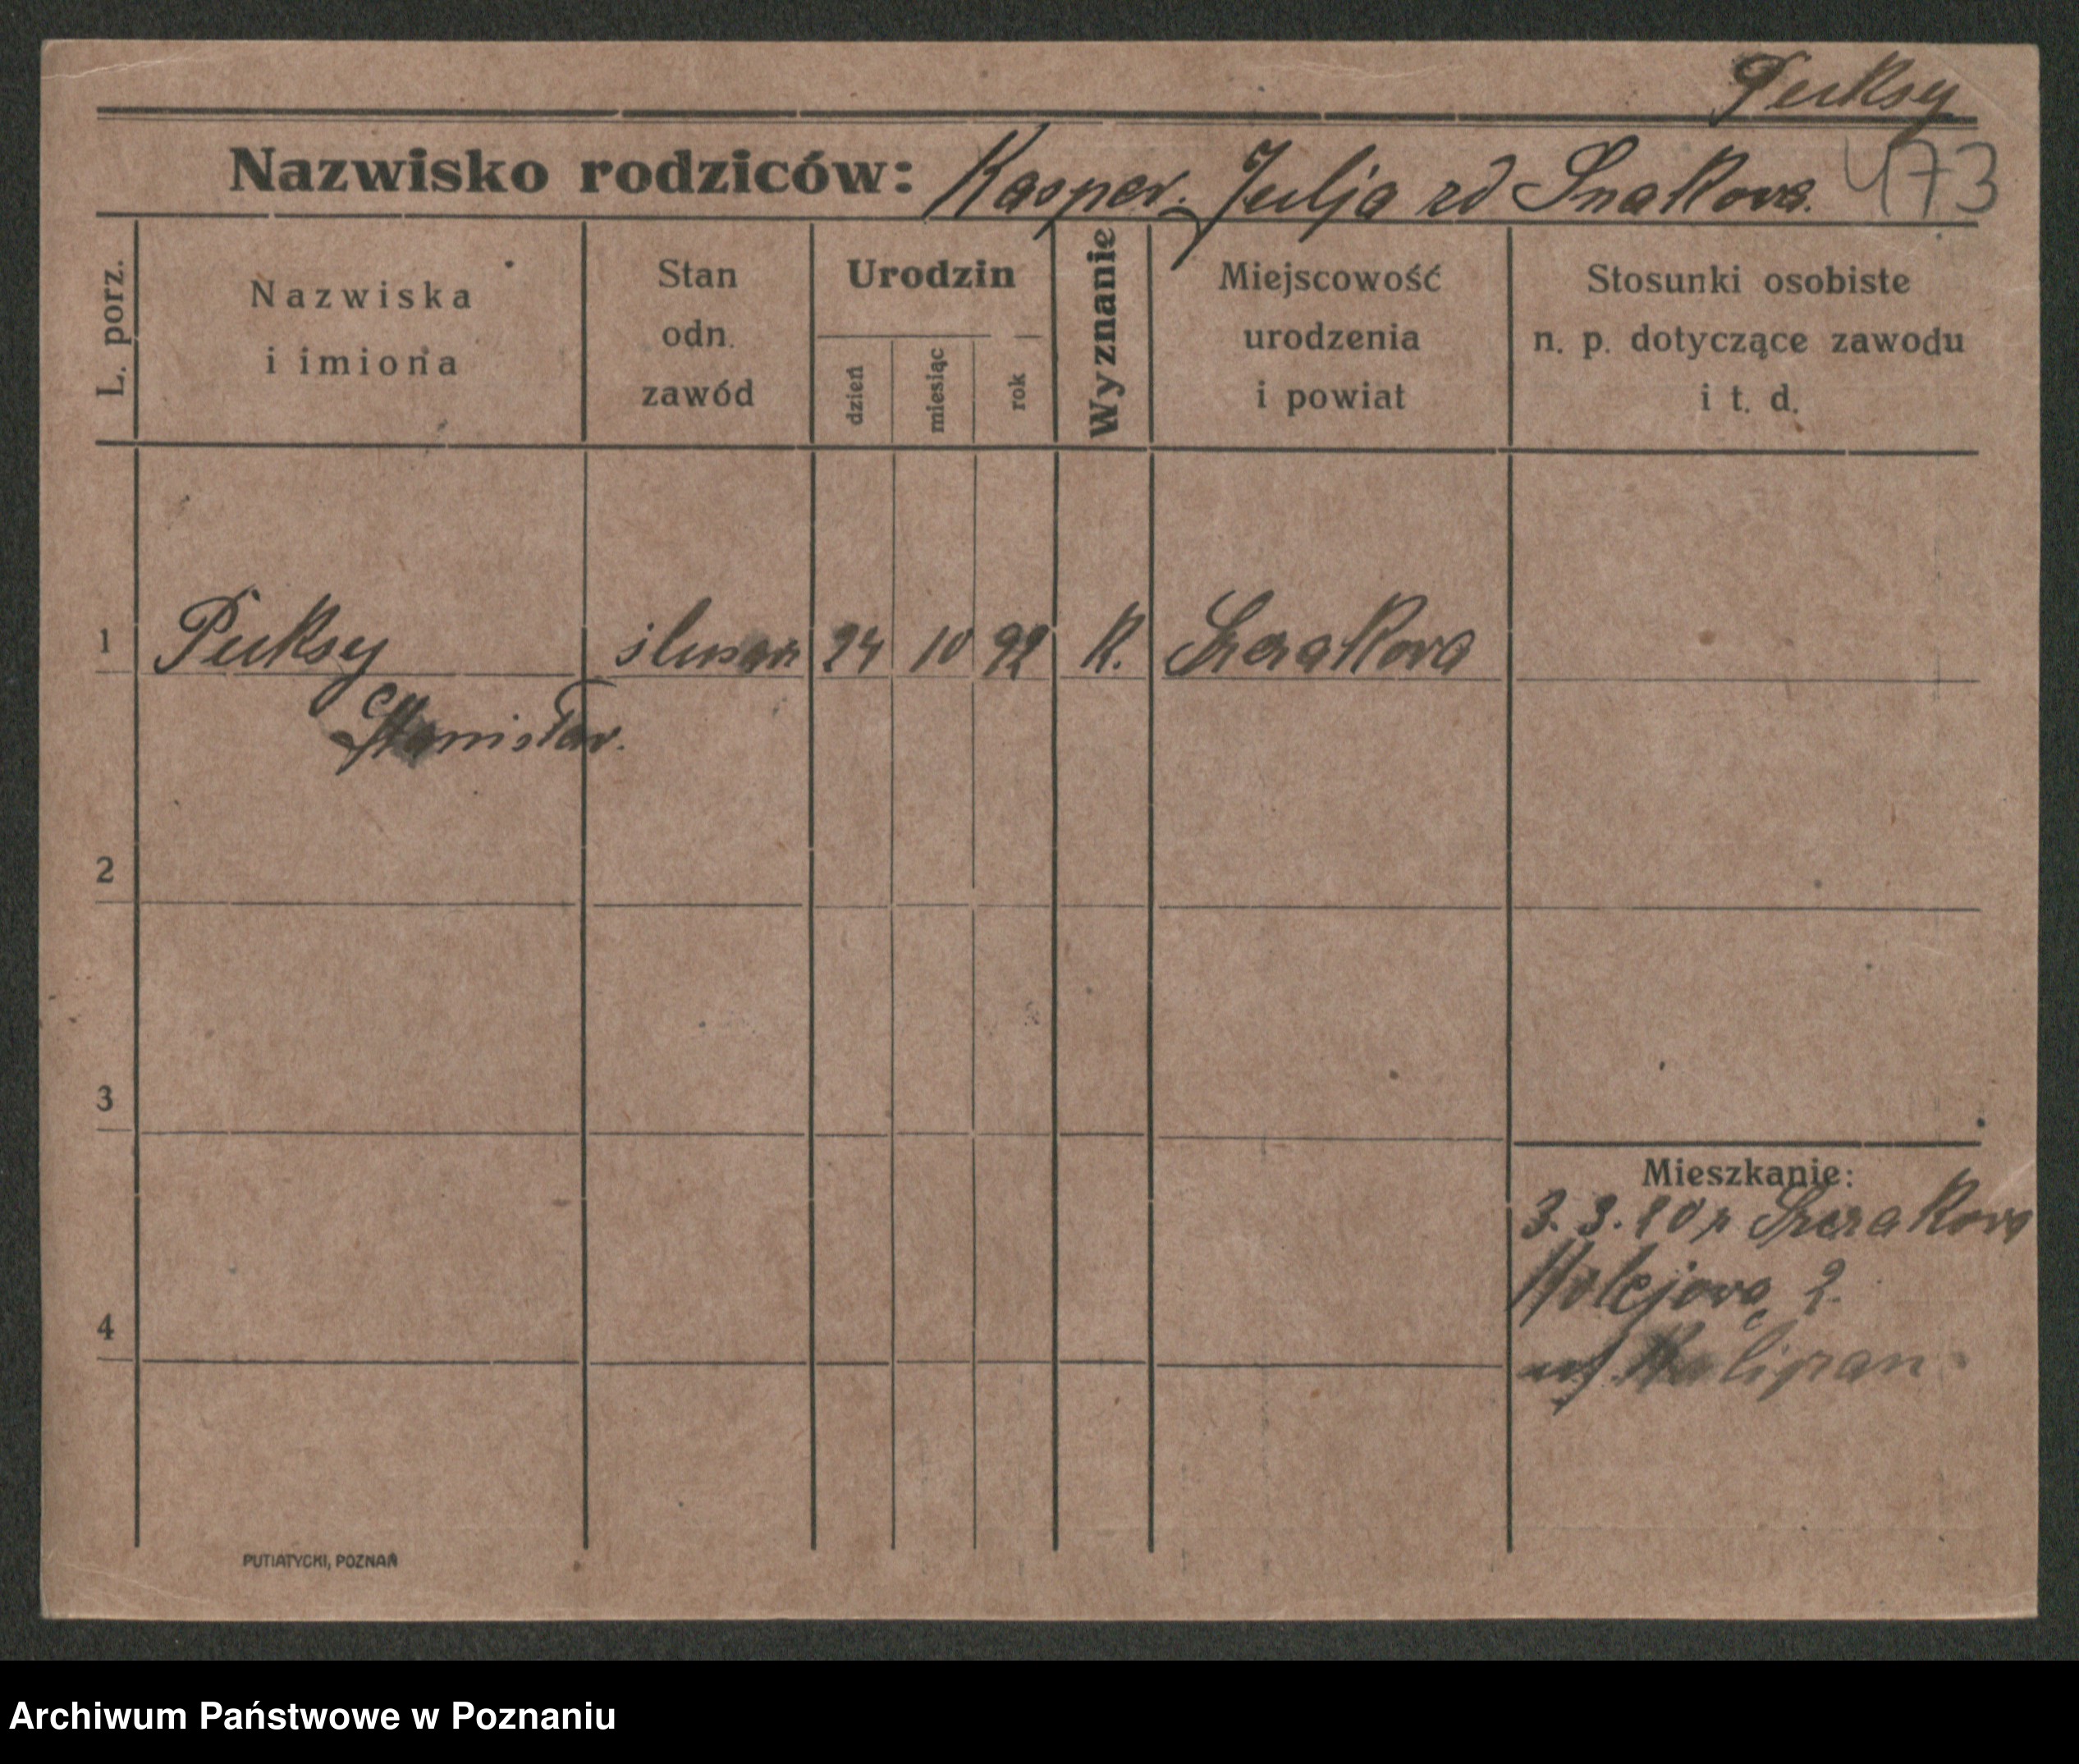 Puksy
Nazwisko rodziców: Kasper. Julja zd Snakowa. 473
L. porz.
Nazwiska
i imiona
Stan
odn.
zawód
Urodzin
dzień
miesiąc
rok
Wyznanie
Miejscowość
urodzenia
i powiat
Stosunki osobiste
n. p. dotyczące zawodu
i t. d.
1 Puksy ślusarz 24 10 92 K. Szczakowa
Stanisław.
2
3
4
Mieszkanie:
3. 3. 20 z Szczakowa
Kolejowa 2.
PUTIATYCKI, POZNAŃ
Archiwum Państwowe w Poznaniu